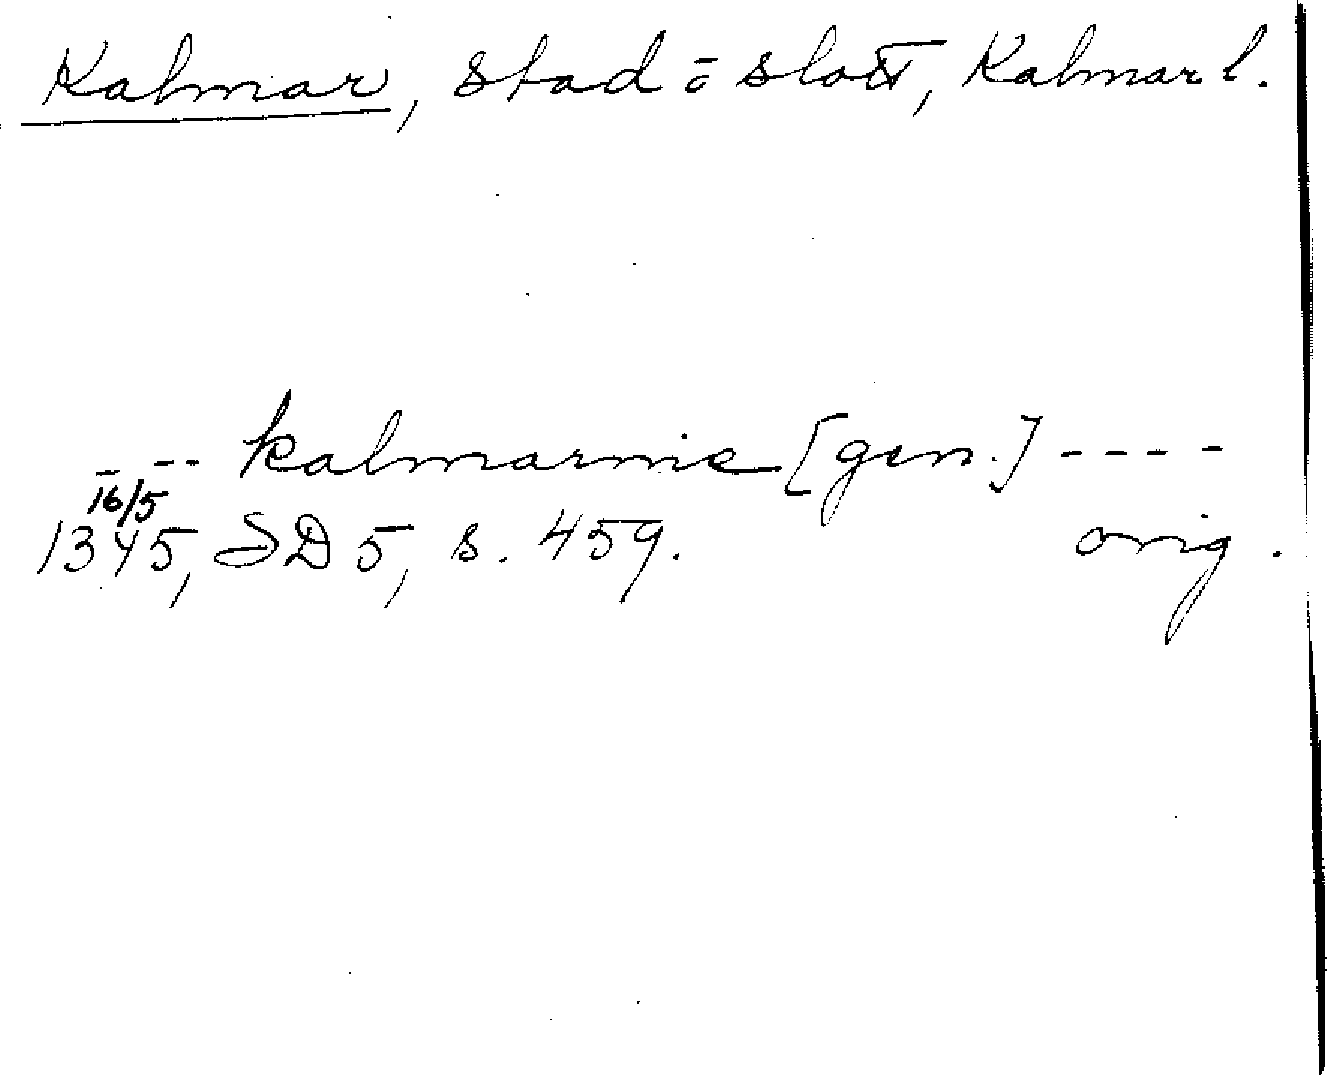 Kalmar, stad ō slott, Kalmar l.
- -- kalmarnie [gen.] ----
16/5
1345, SD 5, s. 459. orig.